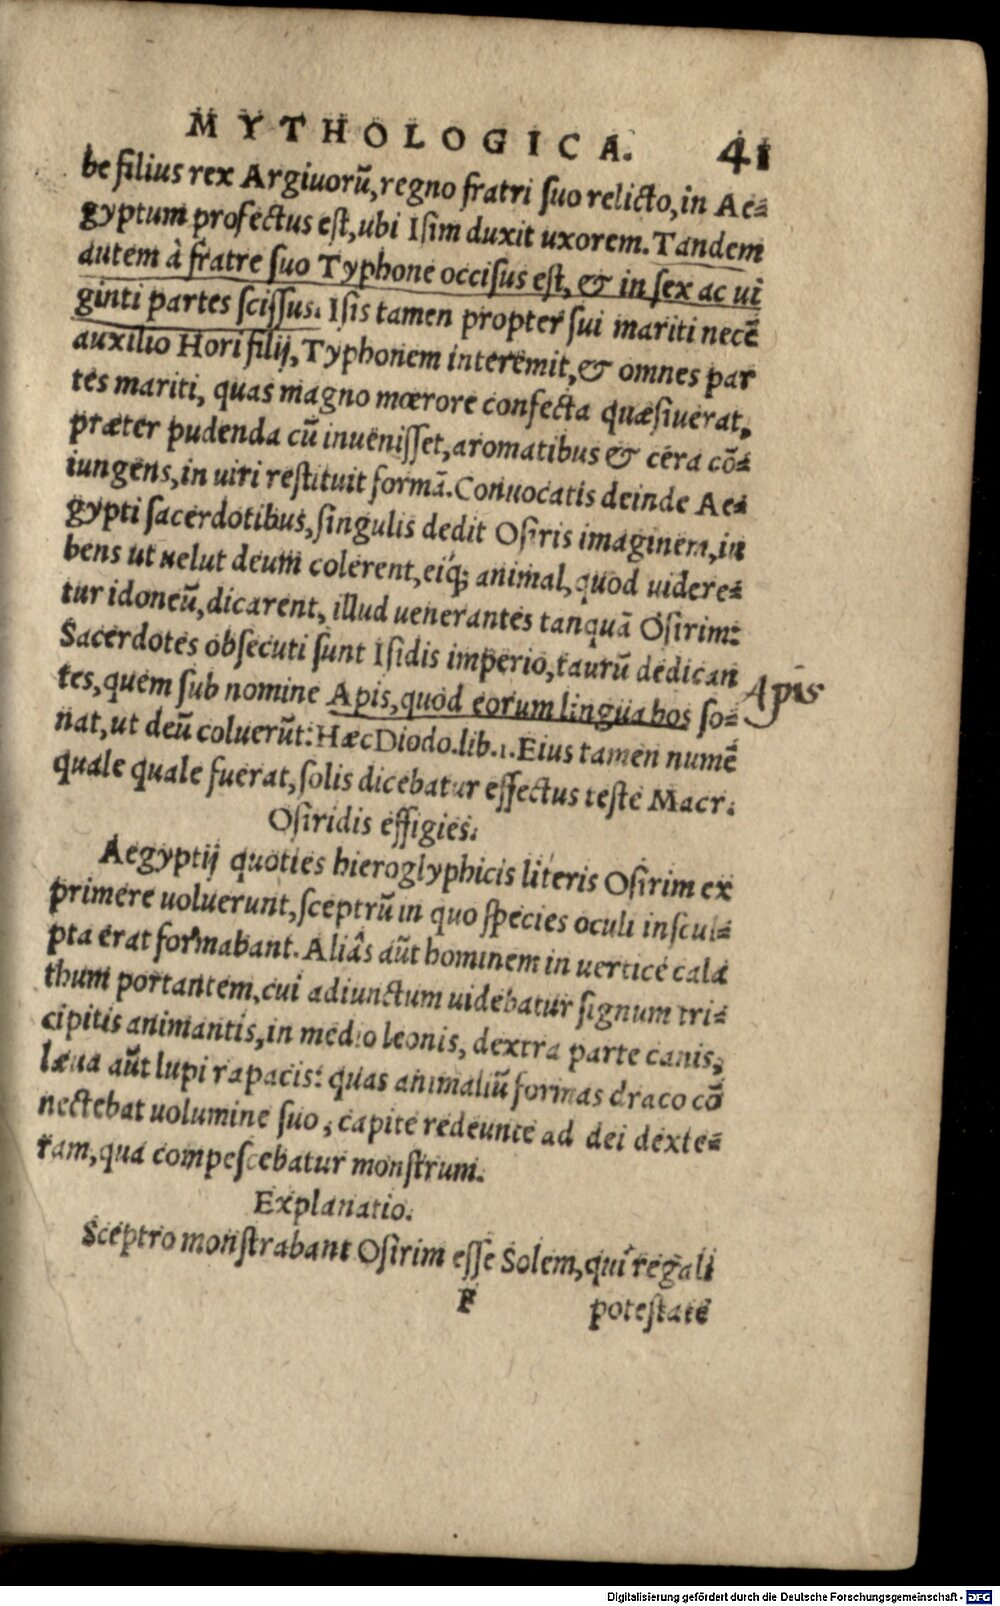 MYTHOLOGICA. 41
be filius rex Argiuorū, regno fratri suo relicto, in Ae-
gyptum profectus est, ubi Isim duxit uxorem. Tandem
autem à fratre suo Typhone occisus est, & in sex ac ui
ginti partes scissus. Isis tamen propter sui mariti necē
auxilio Hori filij, Typhonem interemit, & omnes par
tes mariti, quas magno mœrore confecta quæsiuerat,
præter pudenda cū inuenisset, aromatibus & cera cō-
iungens, in uiri restituit formā. Conuocatis deinde Ae-
gypti sacerdotibus, singulis dedit Osiris imaginem, iu
bens ut uelut deum colerent, eiq́; animal, quod uidere-
tur idoneū, dicarent, illud uenerantes tanquā Osirim:
Sacerdotes obsecuti sunt Isidis imperio, taurū dedican
tes, quem sub nomine Apis, quod eorum lingua bos so-
Apis
nat, ut deū coluerūt: Hæc Diodo. lib. 1. Eius tamen numē
quale quale fuerat, solis dicebatur effectus teste Macr.
Osiridis effigies.
Aegyptij quoties hieroglyphicis literis Osirim ex
primere uoluerunt, sceptrū in quo species oculi inscul-
pta erat formabant. Aliâs aūt hominem in uertice cala
thum portantem, cui adiunctum uidebatur signum tri-
cipitis animantis, in medio leonis, dextra parte canis,
læua aūt lupi rapacis: quas animaliū formas draco cō
nectebat uolumine suo, capite redeunte ad dei dexte-
ram, qua compescebatur monstrum.
Explanatio.
Sceptro monstrabant Osirim esse Solem, qui regali
F potestate
Digitalisierung gefördert durch die Deutsche Forschungsgemeinschaft - DFG